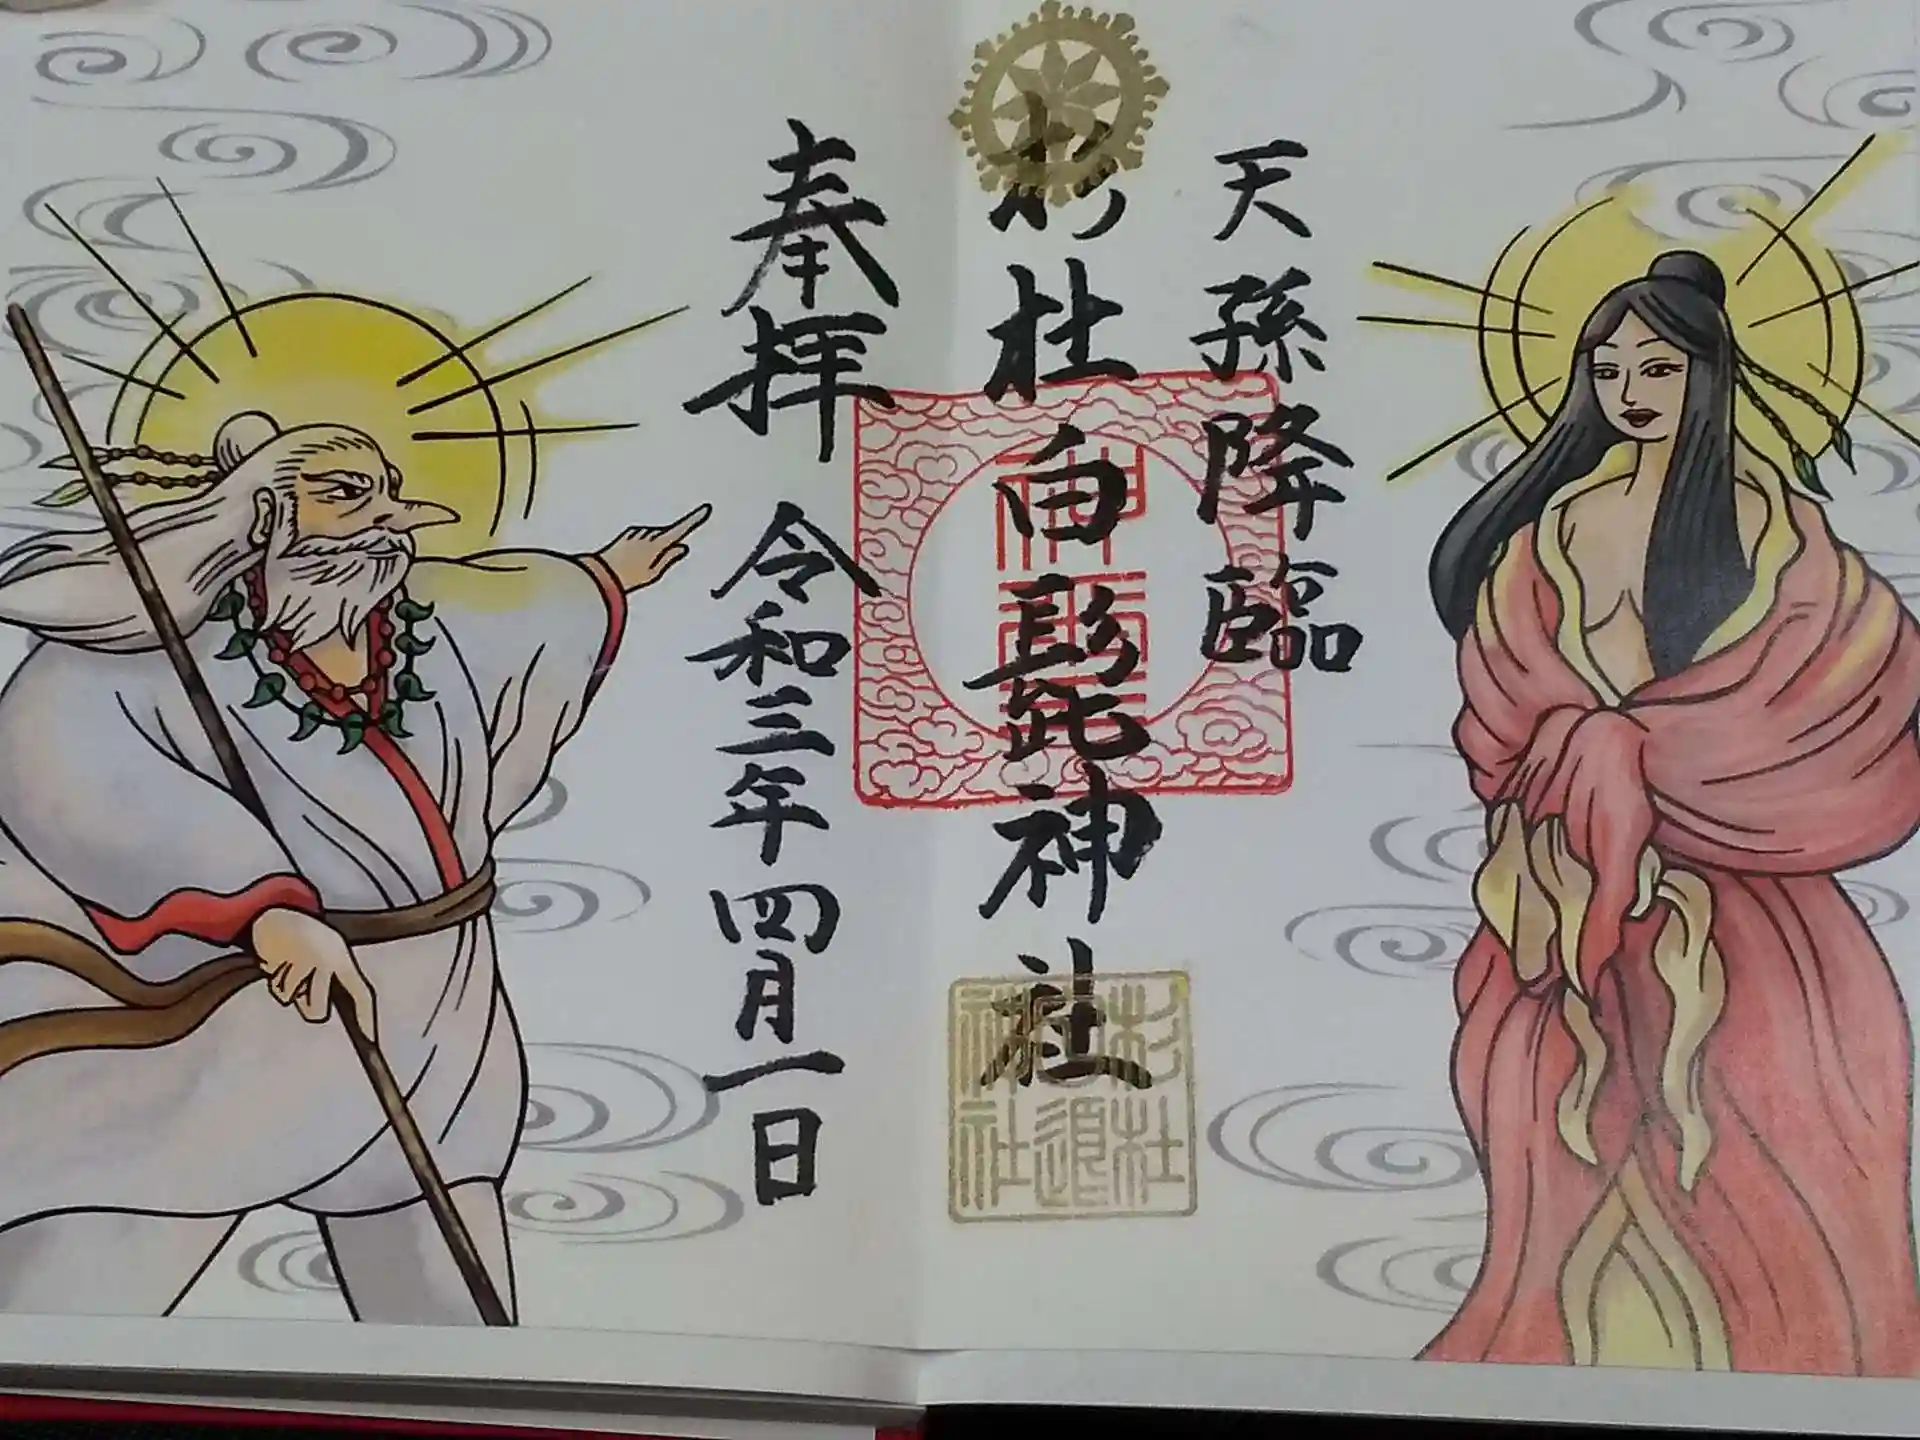 天孫降臨
杉杜白髭神社
奉拝
令和三年四月一日
杉杜
神社